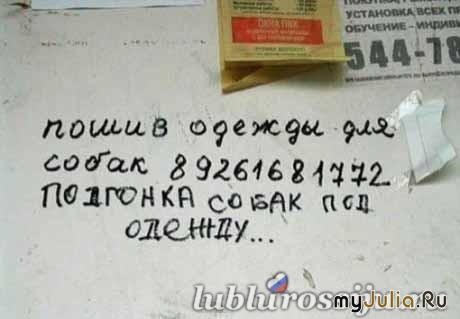 ОКНА ПВХ
УСТАНОВКА ВСЕХ
ОБУЧЕНИЕ - ИНДИВИ
544-78
пошив одежды для
собак 89261681772
ПОДГОНКА СОБАК ПОД
ОДЕЖДУ...
lublurossiju.ru
myJulia.Ru